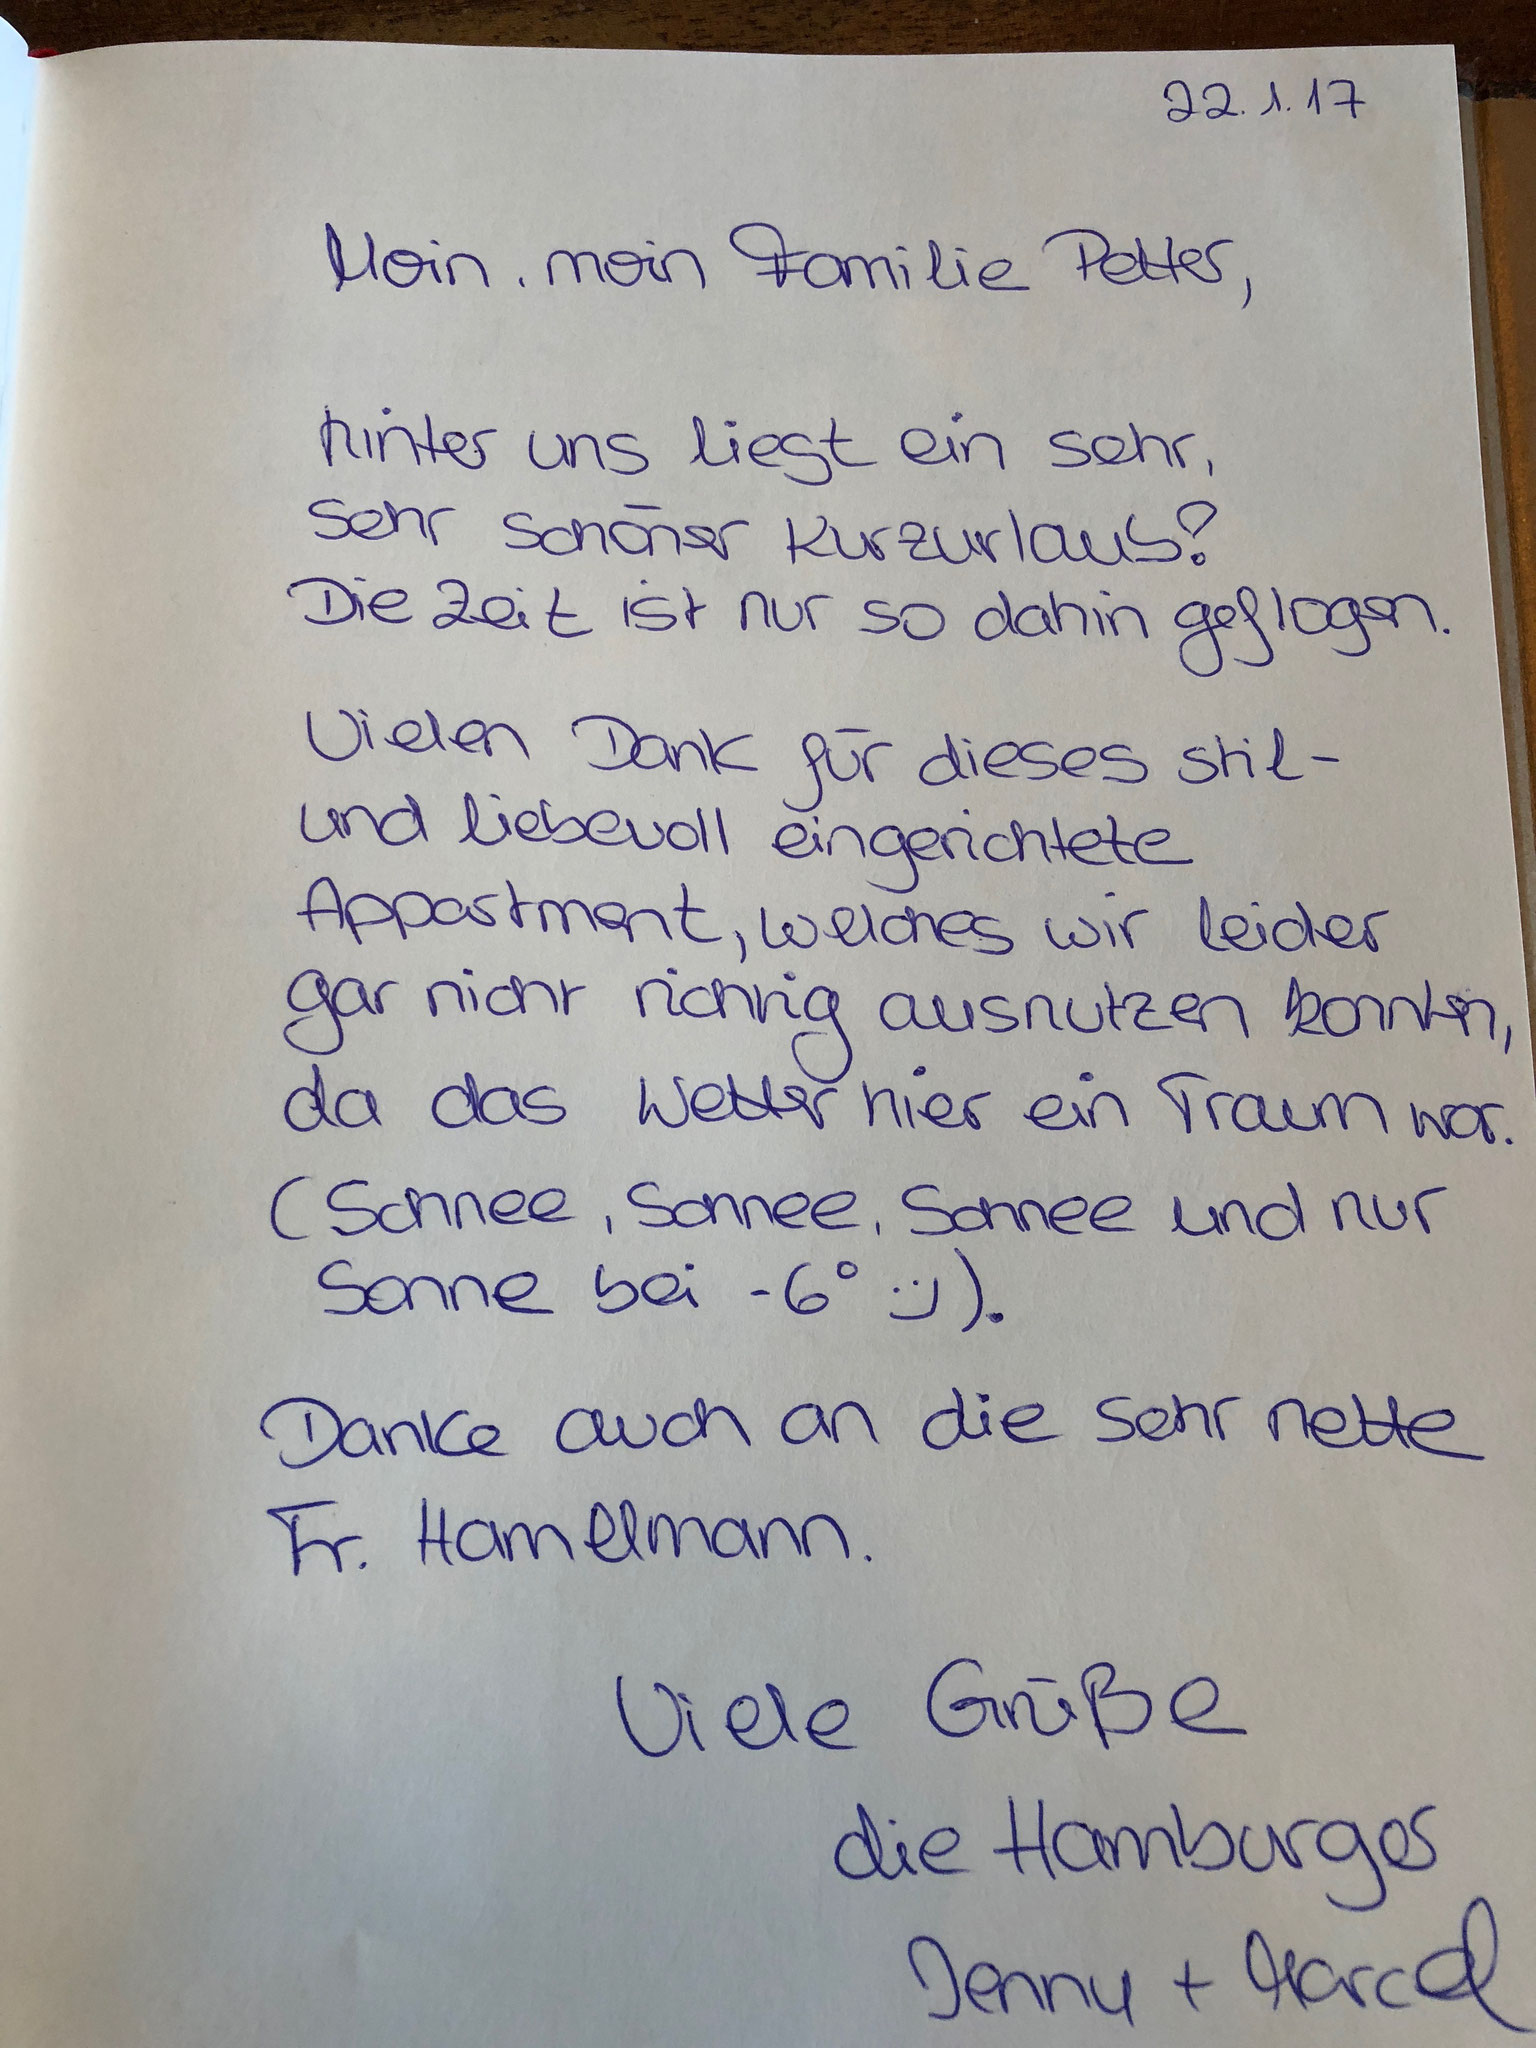 22.1.17
Moin, moin Familie Petter,
hinter uns liegt ein sehr,
sehr schöner Kurzurlaub!
Die Zeit ist nur so dahin geflogen.
Vielen Dank für dieses stil-
und liebevoll eingerichtete
Appartment, welches wir leider
gar nicht richtig ausnutzen konnten,
da das Wetter hier ein Traum war.
(Schnee, Schnee, Schnee und nur
Sonne bei -6° :-)).
Danke auch an die sehr nette
Fr. Hamelmann.
Viele Grüße
die Hamburger
Jenny + Marcel